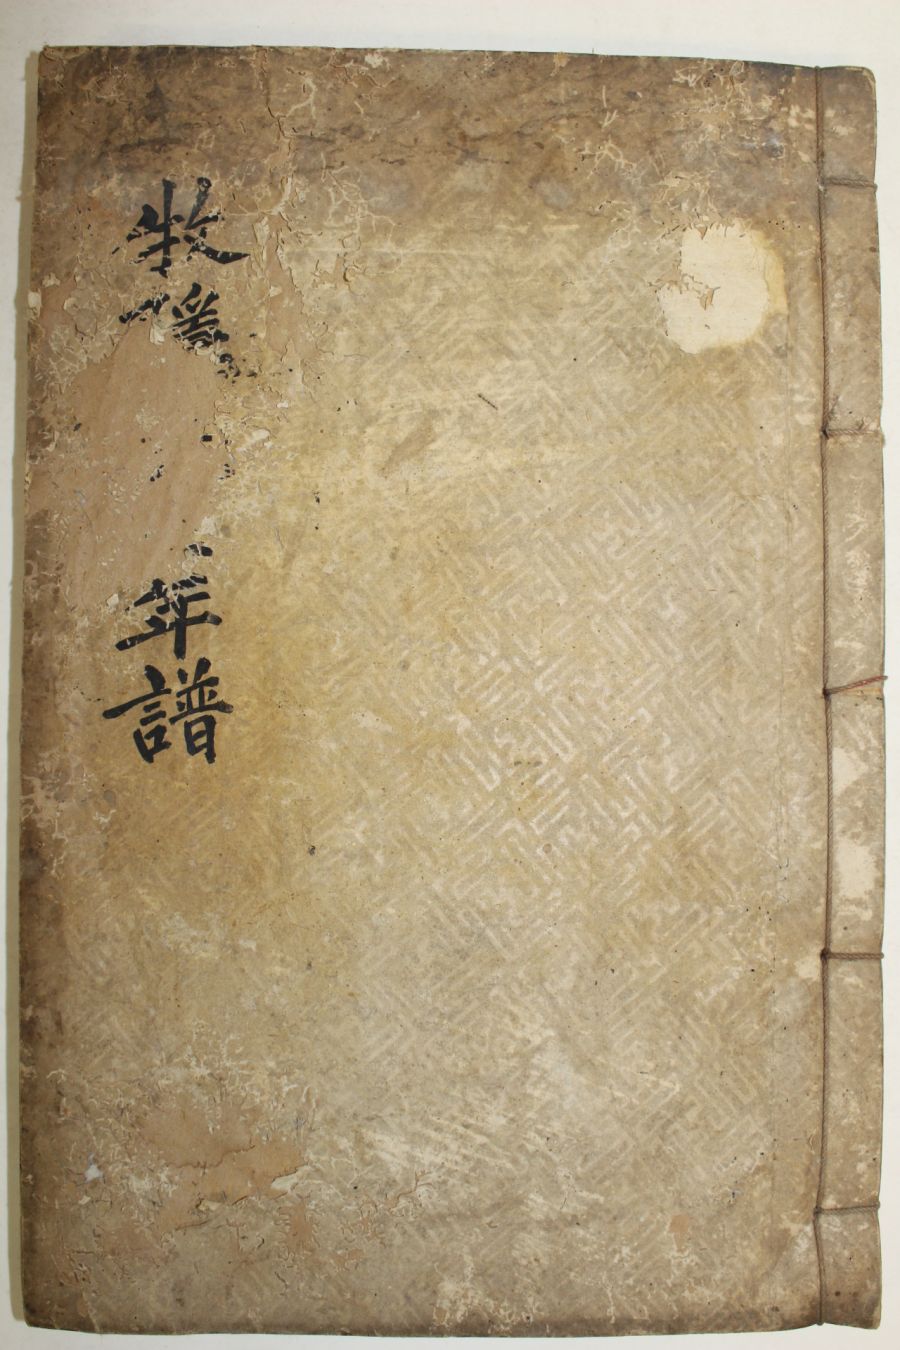 牧隱年譜